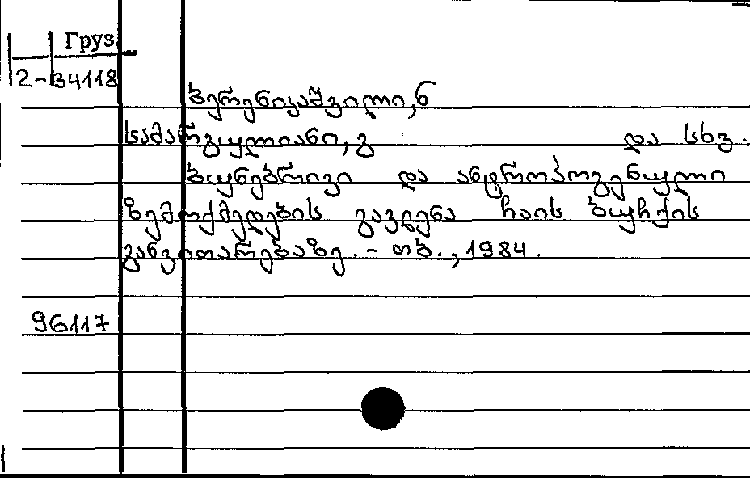 Груз
2-34118
ბერენიკაშვილი, ნ
სამარგულიანი, გ და სხვ.
ბუნებრივი და ანტროპოგენული
ზემოქმედების გავლენა ჩაის ბუჩქის
განვითარებაზე. - თბ., 1984.
96117